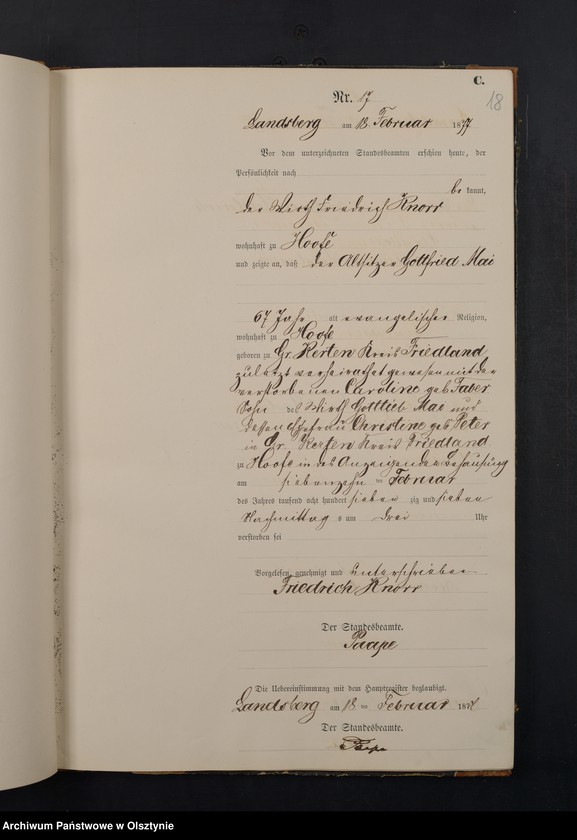 C.
18
Nr. 17
Landsberg am 18 Februar 1877
Vor dem unterzeichneten Standesbeamten erschien heute, der
Persönlichkeit nach
be kannt,
der Wirth Friedrich Knorr
wohnhaft zu Hoofe
und zeigte an, daß der Altsitzer Gottfried Mai
67 Jahr alt evangelischer Religion,
wohnhaft zu Hoofe
geboren zu Gr. Kerten Kreis Friedland
zuletzt verheirathet gewesen mit der
verstorbenen Caroline geb Faber
Sohn des Wirth Gottlieb Mai und
dessen Ehefrau Christine geb Peter
in Gr. Kerten Kreis Friedland
zu Hoofe in des Anzeigenden Behausung
am siebenzehn ten Februar
des Jahres tausend acht hundert sieben zig und sieben
Nachmittag s um drei Uhr
verstorben sei
Vorgelesen, genehmigt und unterschrieben
Friedrich Knorr
Der Standesbeamte.
Paape
Die Uebereinstimmung mit dem Hauptregister beglaubigt.
Landsberg am 18 ten Februar 1877
Der Standesbeamte.
Paape
Archiwum Państwowe w Olsztynie